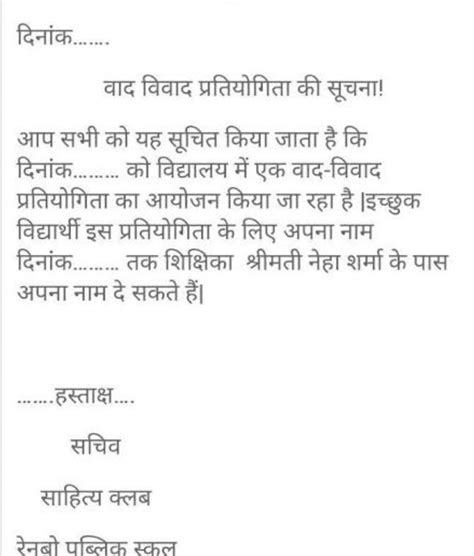 दिनांक.......
वाद विवाद प्रतियोगिता की सूचना!
आप सभी को यह सूचित किया जाता है कि
दिनांक......... को विद्यालय में एक वाद-विवाद
प्रतियोगिता का आयोजन किया जा रहा है |इच्छुक
विद्यार्थी इस प्रतियोगिता के लिए अपना नाम
दिनांक......... तक शिक्षिका श्रीमती नेहा शर्मा के पास
अपना नाम दे सकते हैं|
.......हस्ताक्ष....
सचिव
साहित्य क्लब
रेनबो पब्लिक स्कूल